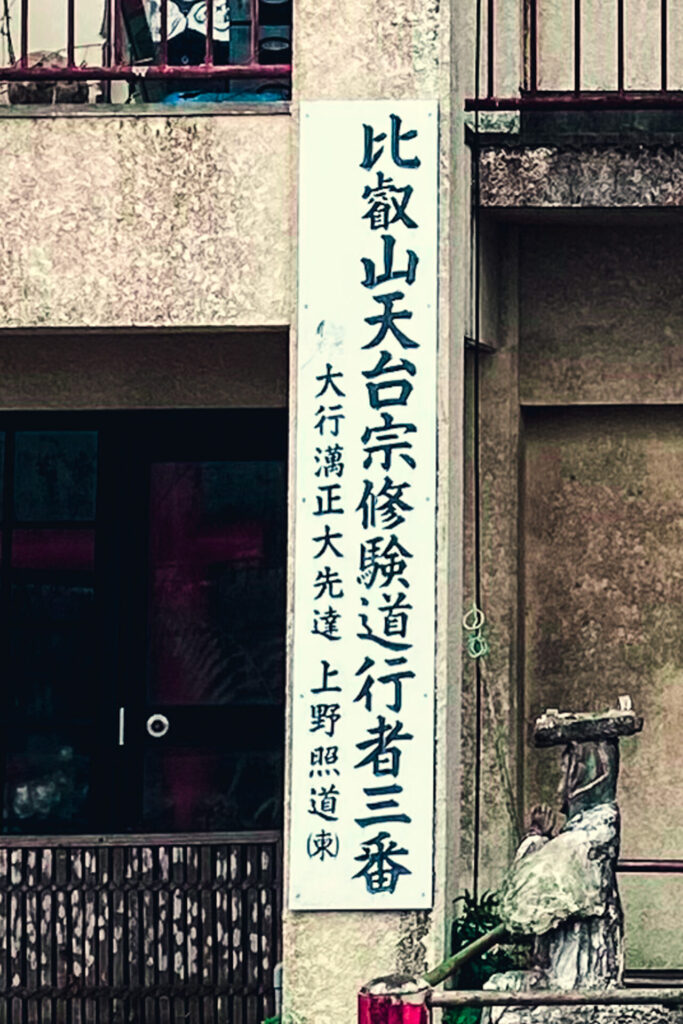 比叡山天台宗修験道行者三番
大行満正大先達 上野照道(東)